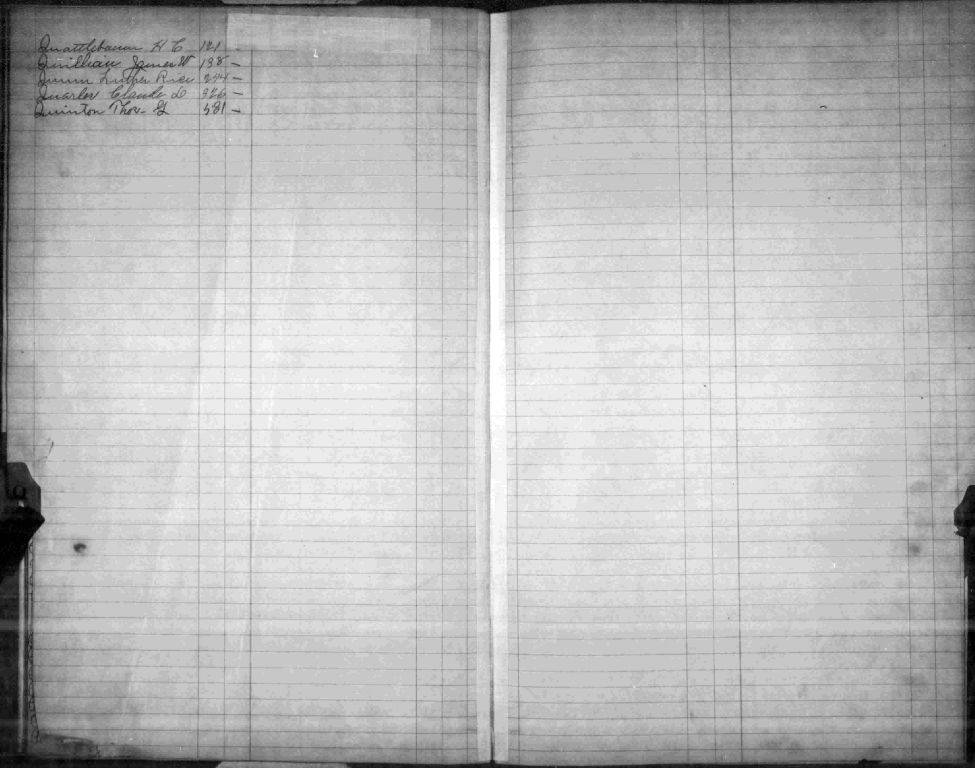 Quattlebaum H C 121 -
Quillian James W 138 -
Quinn Luther Rice 244 -
Quarles Claude D 326 -
Quinton Thos. G 581 -
Q